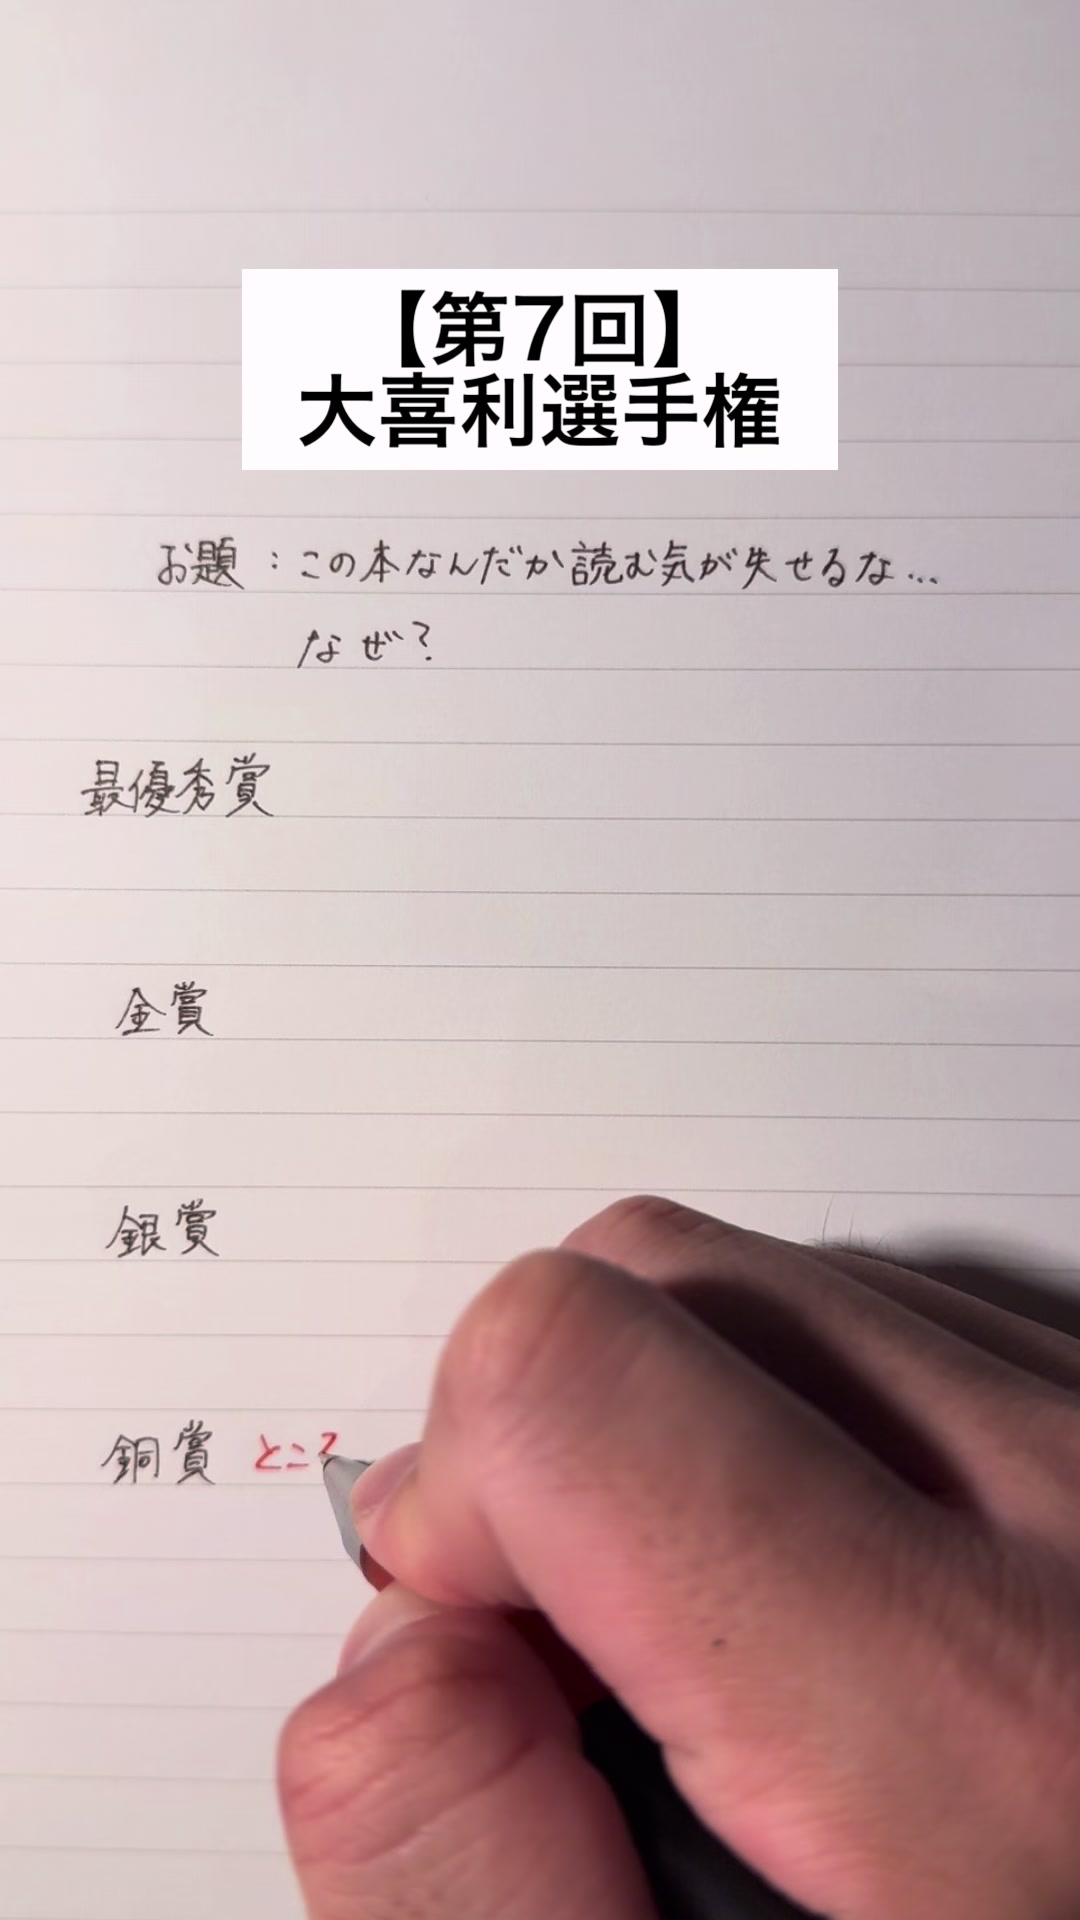 【第7回】
大喜利選手権
お題：この本なんだか読む気が失せるな…
なぜ？
最優秀賞
金賞
銀賞
銅賞 とこ